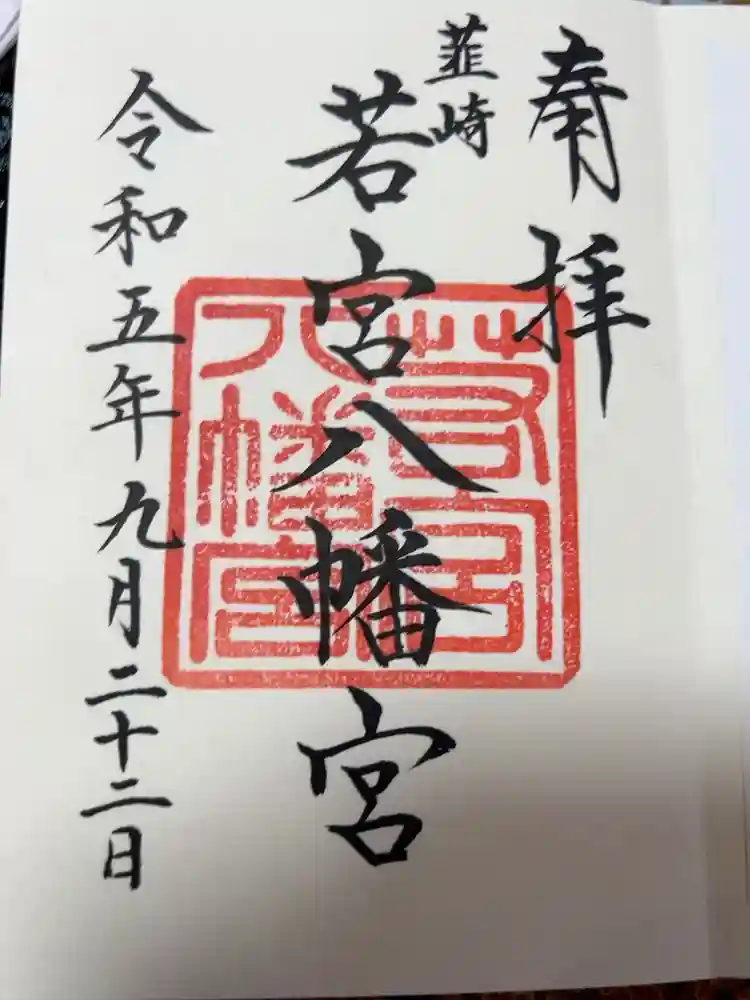 奉拝
韮崎
若宮八幡宮
若宮
八幡宮
令和五年九月二十二日